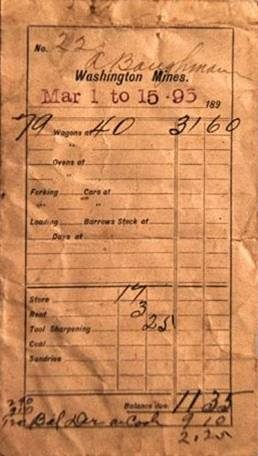 No. 22
A Baughman
Washington Mines.
Mar 1 to 15-93 189
79 Wagons of 40 31 60
"
Ovens of
"
Forking Cars at
" "
Loading Barrows Stock at
Days at
Store 17
Rent 3
Tool Sharpening 25
Coal
Sundries
Balance Due, 11 35
Bal Due Cash 9 10
2.25